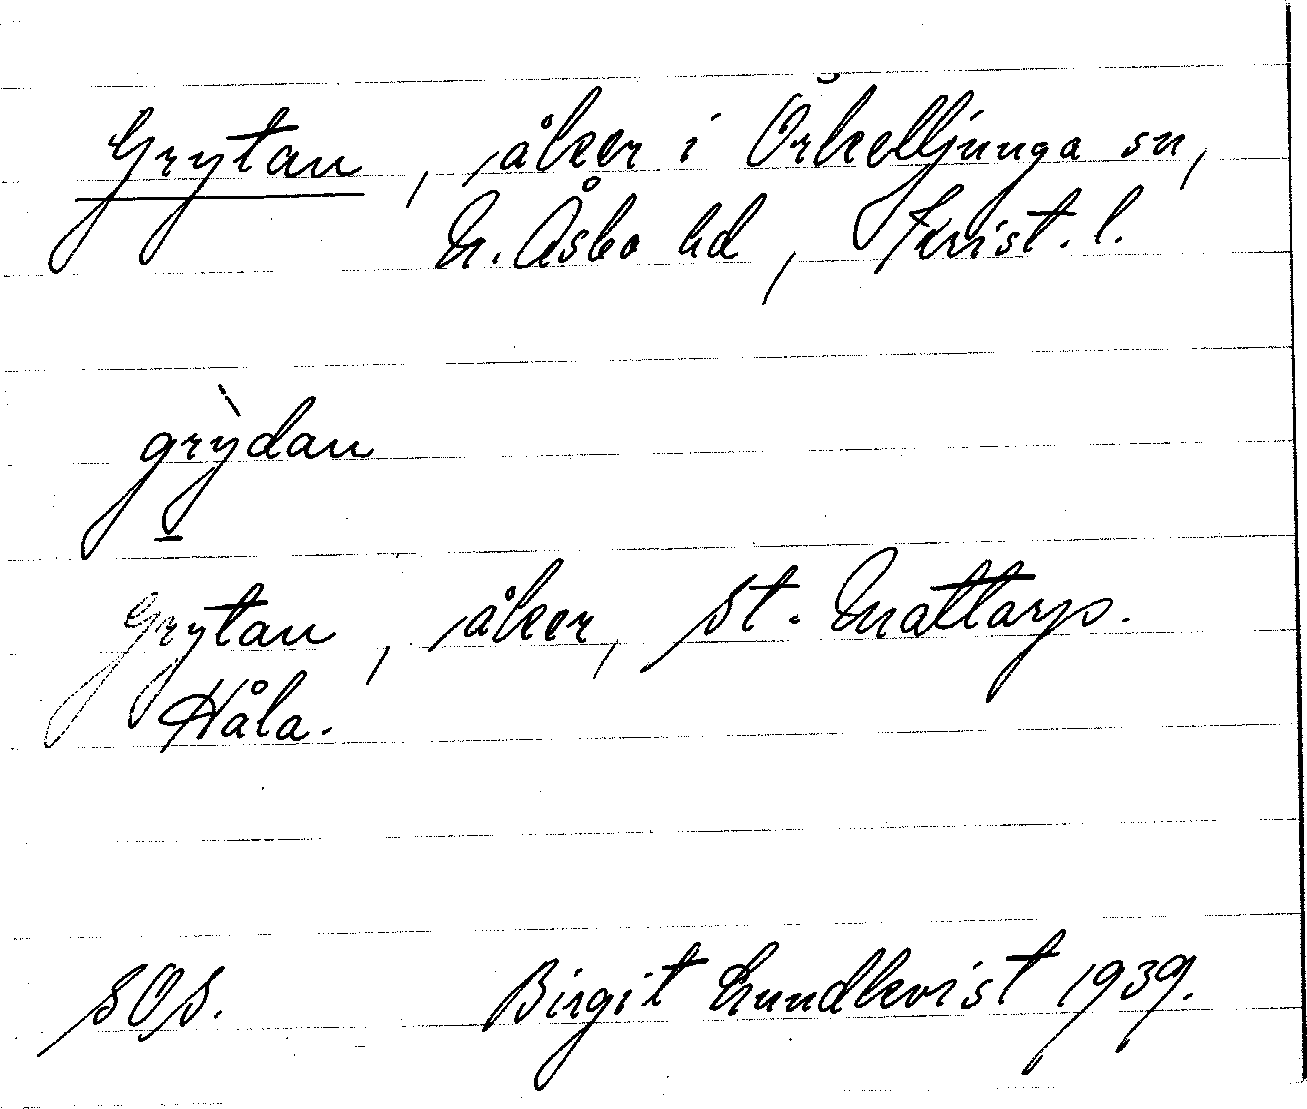 Grytan, åker i Örkelljunga sn,
N. Åsbo hd, Krist. l.
grỳdan
Grytan, åker, St. Mattarp.
Håla.
SOS. Birgit Lundkvist 1939.